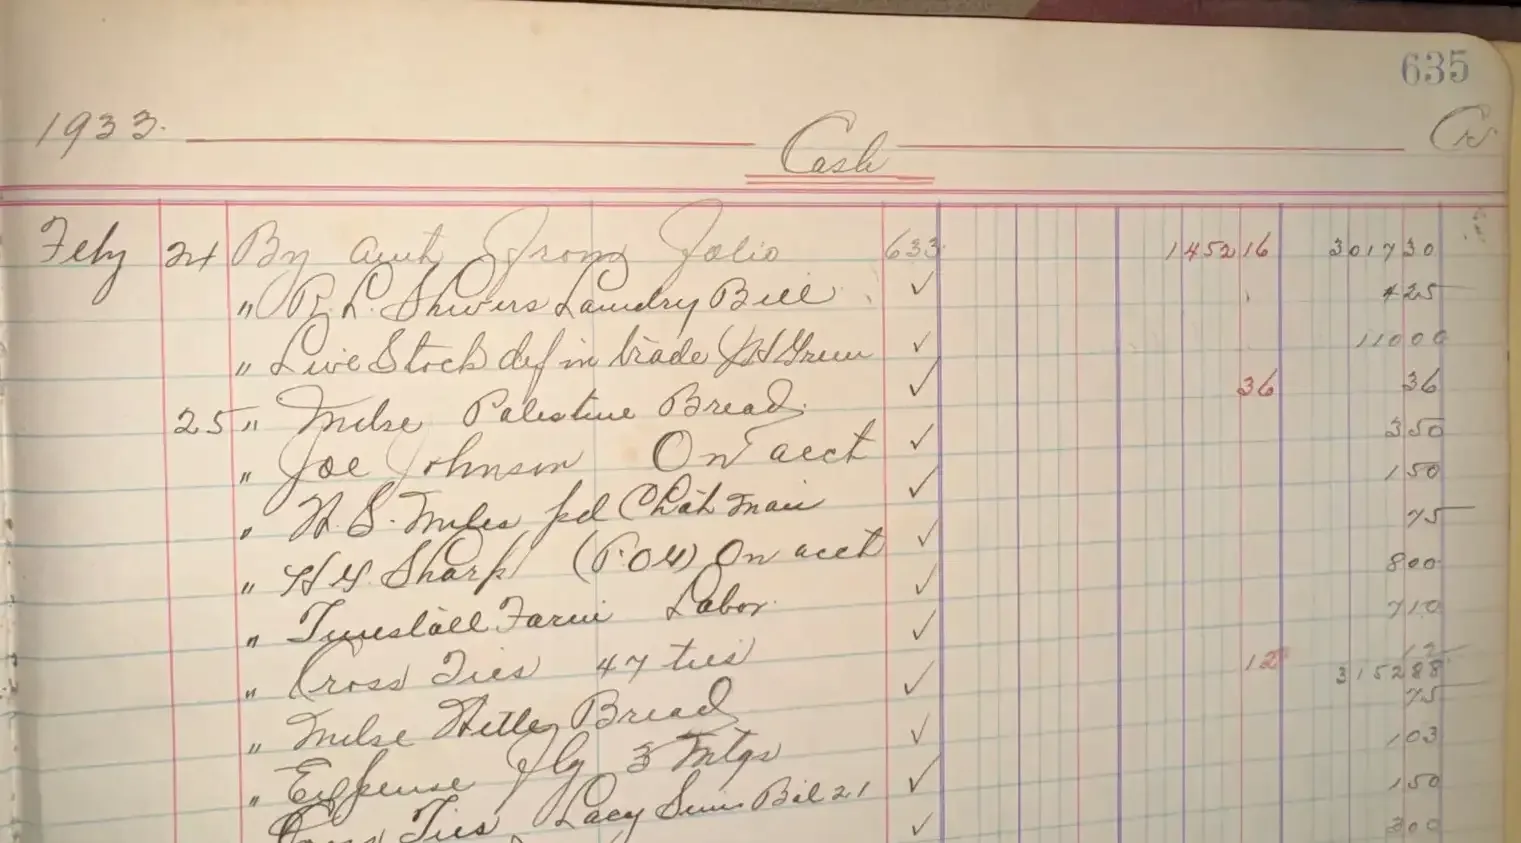 635
1933. Cash Cr
Feby 24 By amt from Folio 633 1452 16 3017 30
" R. L. Shivers Laundry Bill ✓ 4 25
" Live Stock def in trade J H Green ✓ 110 00
25 " Mdse Palestine Bread ✓ 36 36
" Joe Johnson On acct ✓ 3 50
" H. S. Miles pd Chat man ✓ 1 50
" H Y Sharp (P.O.W) On acct ✓ 75
" Tunstall Farm Labor ✓ 8 00
" Cross Ties 47 ties ✓ 7 10
" Mdse Bread ✓ 12 12
3152 88
" Expense Jly 3 Mtgs ✓ 75
Cross Ties Lacy Sims Bal 21 ✓ 1 03
1 50
3 00